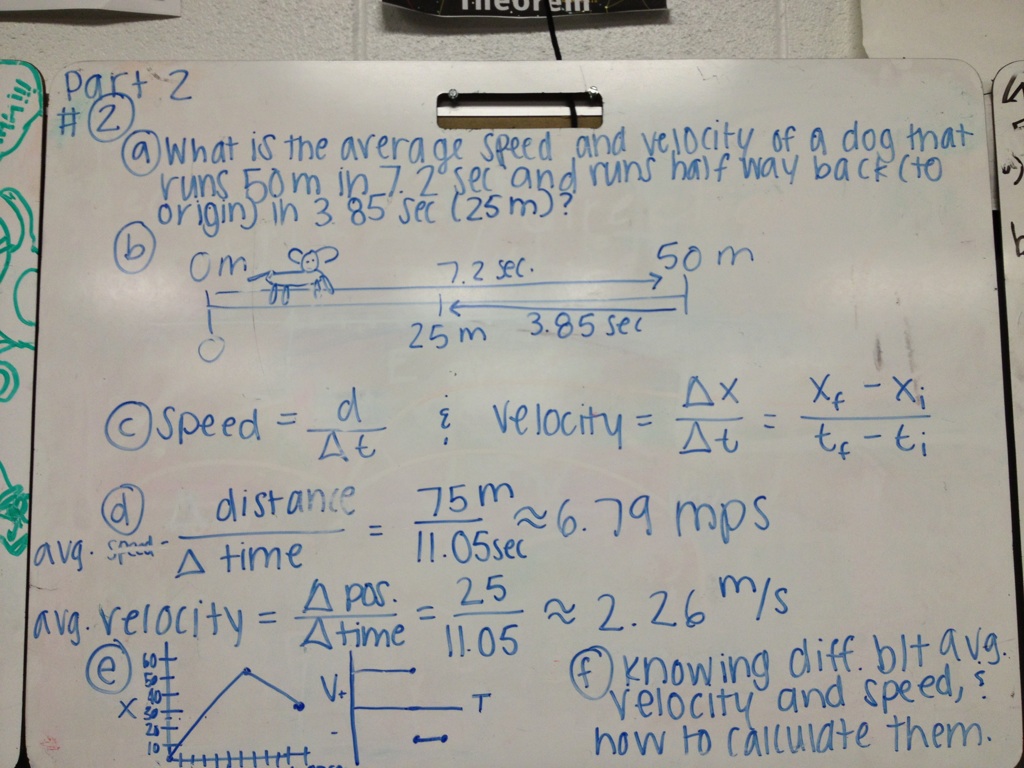 Theorem
Part 2
# 2
a What is the average speed and velocity of a dog that
runs 50m in 7.2 sec and runs half way back (to
origin) in 3.85 sec (25 m)?
b
0m 7.2 sec. 50 m
25 m 3.85 sec
0
c speed = d / Δt & velocity = Δx / Δt = xf - xi / tf - ti
d avg. speed = distance / Δ time = 75m / 11.05sec ≈ 6.79 mps
avg. velocity = Δ pos. / Δ time = 25 / 11.05 ≈ 2.26 m/s
e
60
50
40
30
20
10
X
V + -
T
f knowing diff. b/t avg.
velocity and speed, &
how to calculate them.